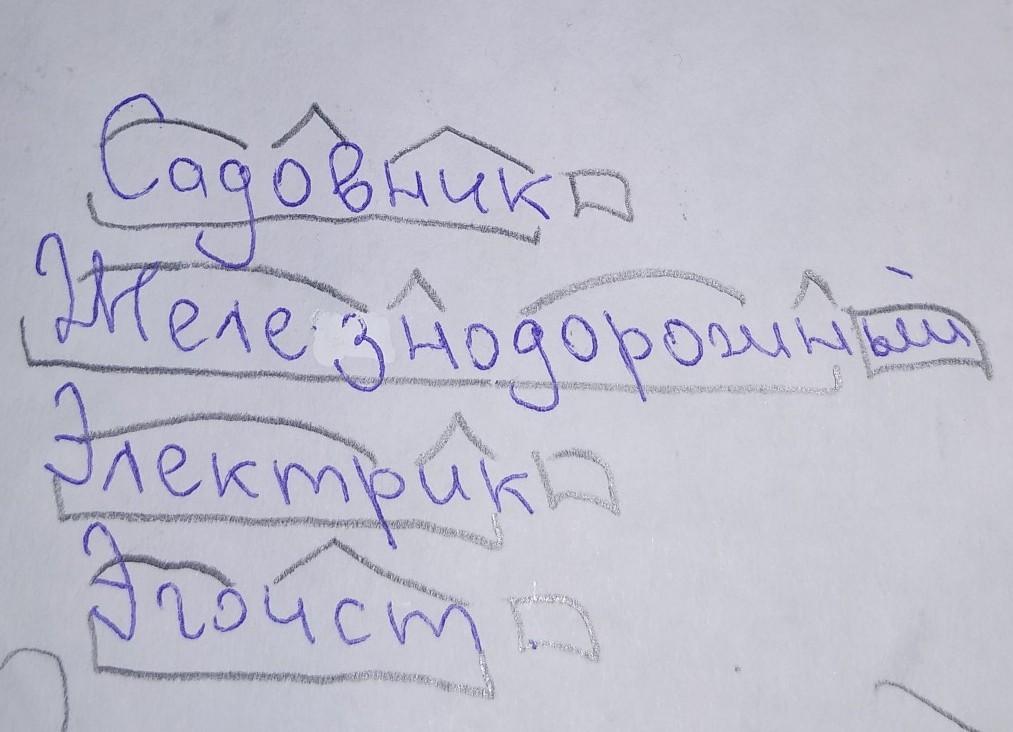 Садовник
Железнодорожный
Электрик
Эгоист